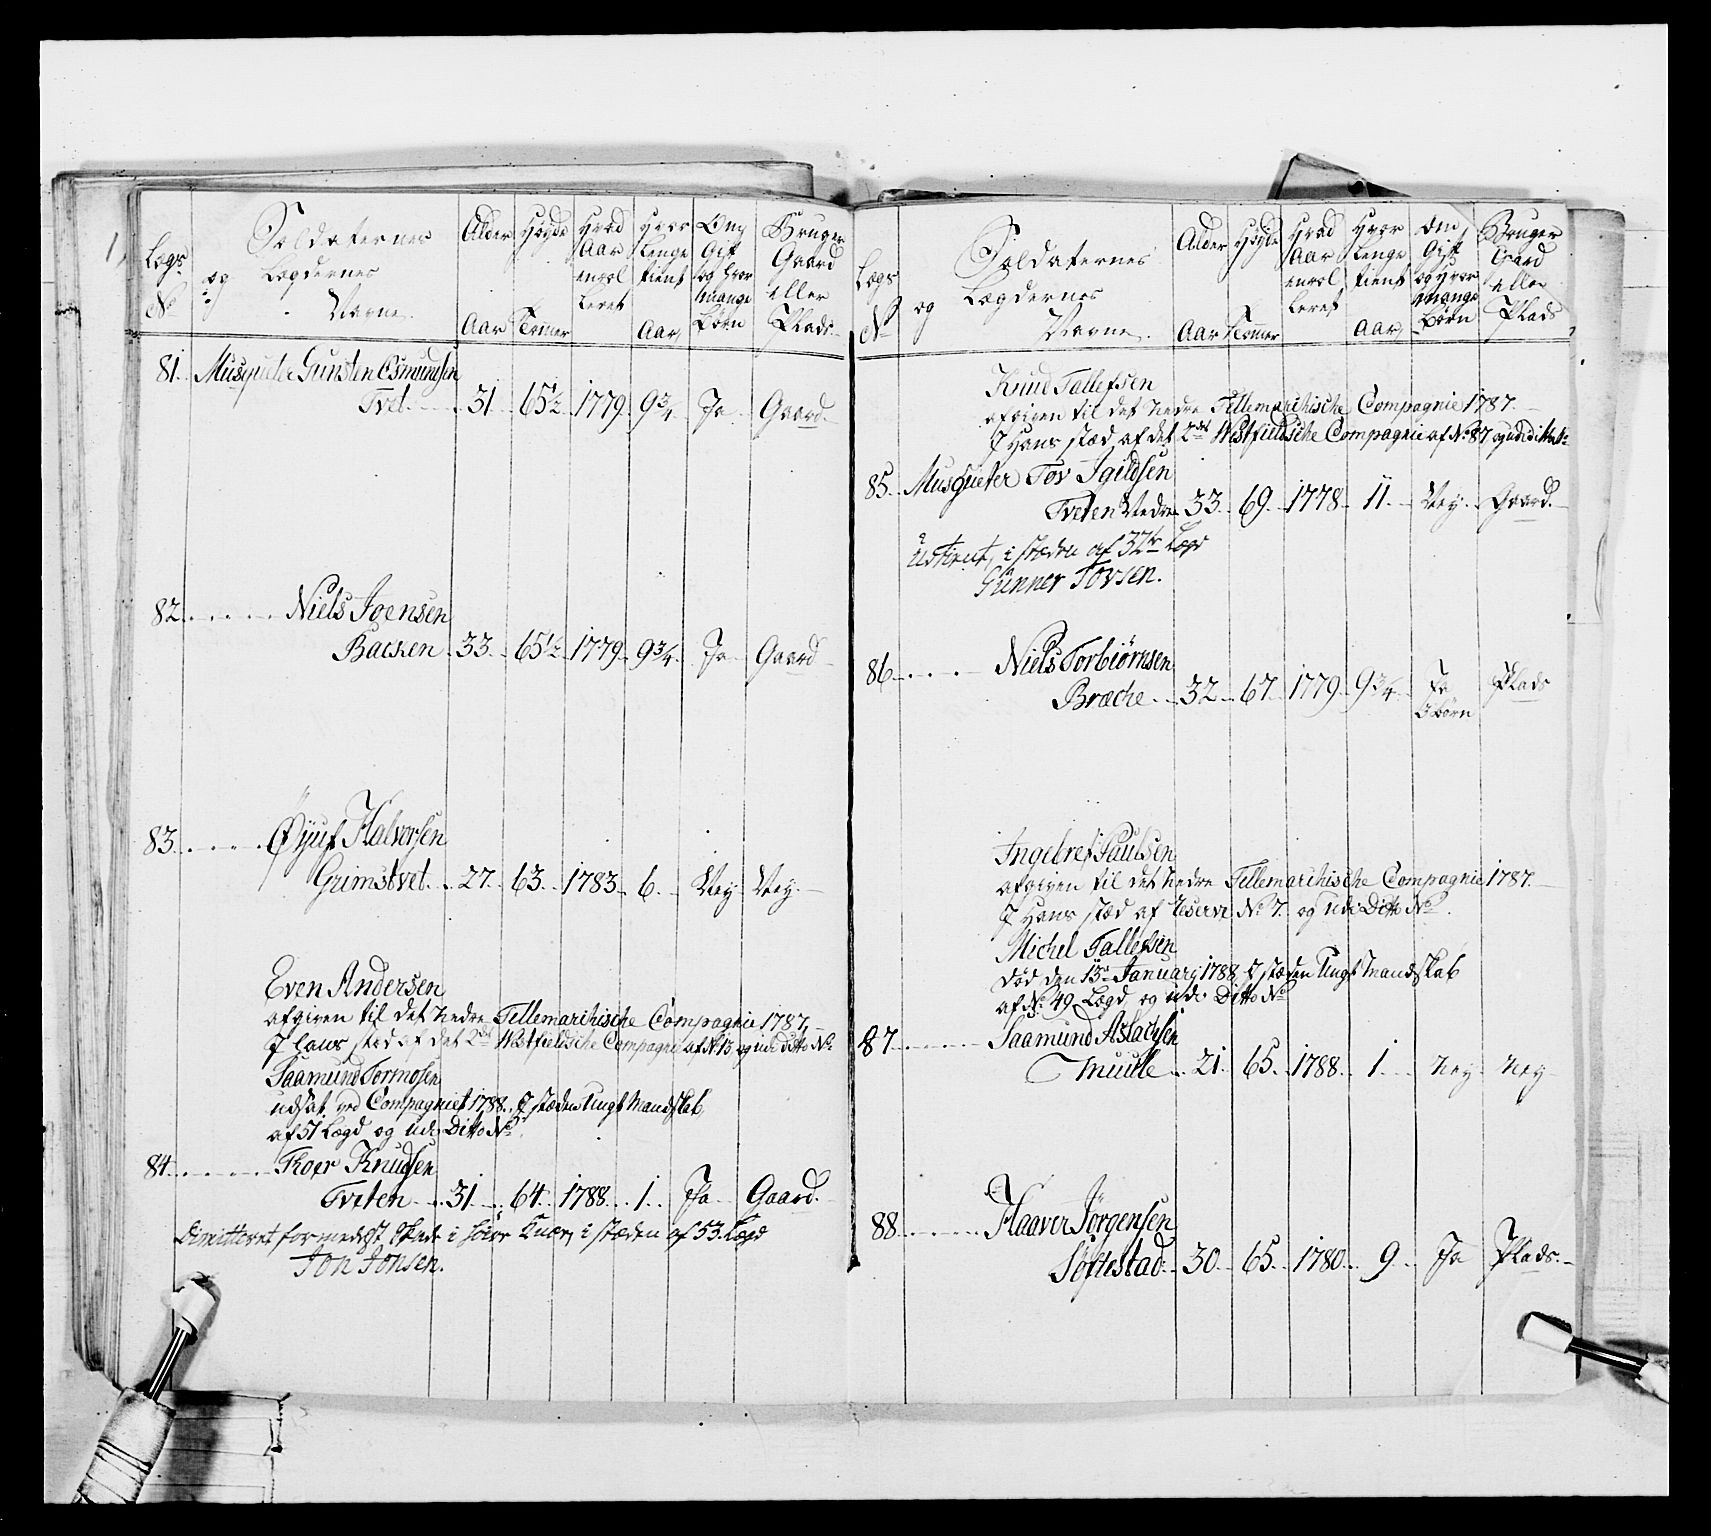 Lægs No
Soldaternes og Lægdernes Navne.
Alder Aar
Høyde Tommer
Hvad Aar enrolleret
Hvor Lenge tient Aar
Om Gift og hvor mange Børn
Bruger Gaard eller Plads
81. Musqueter Gunsten Osmundsen
Tvet 31 65½ 1779 9¾ Ja Gaard.
82. Niels Joensen
Bacchen 33. 65½ 1779 9¾ Ja Gaard
83. Øyuf Halvorsen
Grimstvet. 27. 63. 1783. 6. Ney Ney.
Even Andersen
afgiven til det Nedre Tellemarchische Compagnie 1787.
I hans sted af det 2det Westfieldsche Compagni af No 15 og udi ditto No
Saamund Tormosen
udsat ved Compagniet 1788. I stæden Ungt Mandskab
af 51 Lægd og udi Ditto No.
84. Thoer Knudsen
Tveten 31 64. 1788. 1. Ja Gaard.
Dimitteret formedelst Skade i høire Knæe, i stæden af 53. Lægd
Jon Jonsen.
Lægs No
Soldaternes og Lægdernes Navne.
Alder Aar
Høyde Tommer
Hvad Aar enrolleret
Hvor Lenge tient Aar
Om Gift og hvor mange Børn
Bruger Gard eller Plads
Knud Tallefsen
afgiven til det Nedre Tellemarchische Compagnie 1787.
I Hans stæd af det 2det Westfieldsche Compagnie af No 87 og udi ditto No
85. Musqueter Tov Igildsen
Tveten Nedre 33. 69. 1778. 11. Ney. Gaard.
Udtient, i stæden af 32te Lægd
Gunner Tovsen.
86. Niels Torbiørnsen
Bræche 32. 67. 1779. 9¾. Ja 3 børn Plads
Ingebret Paulsen
afgiven til det Nedre Tellemarchische Compagnie 1787.
I Hans stæd af Reserve No 7. og udi Ditto No.
Michel Tallefsen
død den 15de January 1788 I stæden Ungt Mandskab
af No 49 Lægd og udi Ditto No
87. Saamund Aslachsen
Muule 21. 65. 1788. 1. Ney Ney
88. Haaver Jørgensen
Søftestad. 30. 65. 1780. 9. Ja Plads.